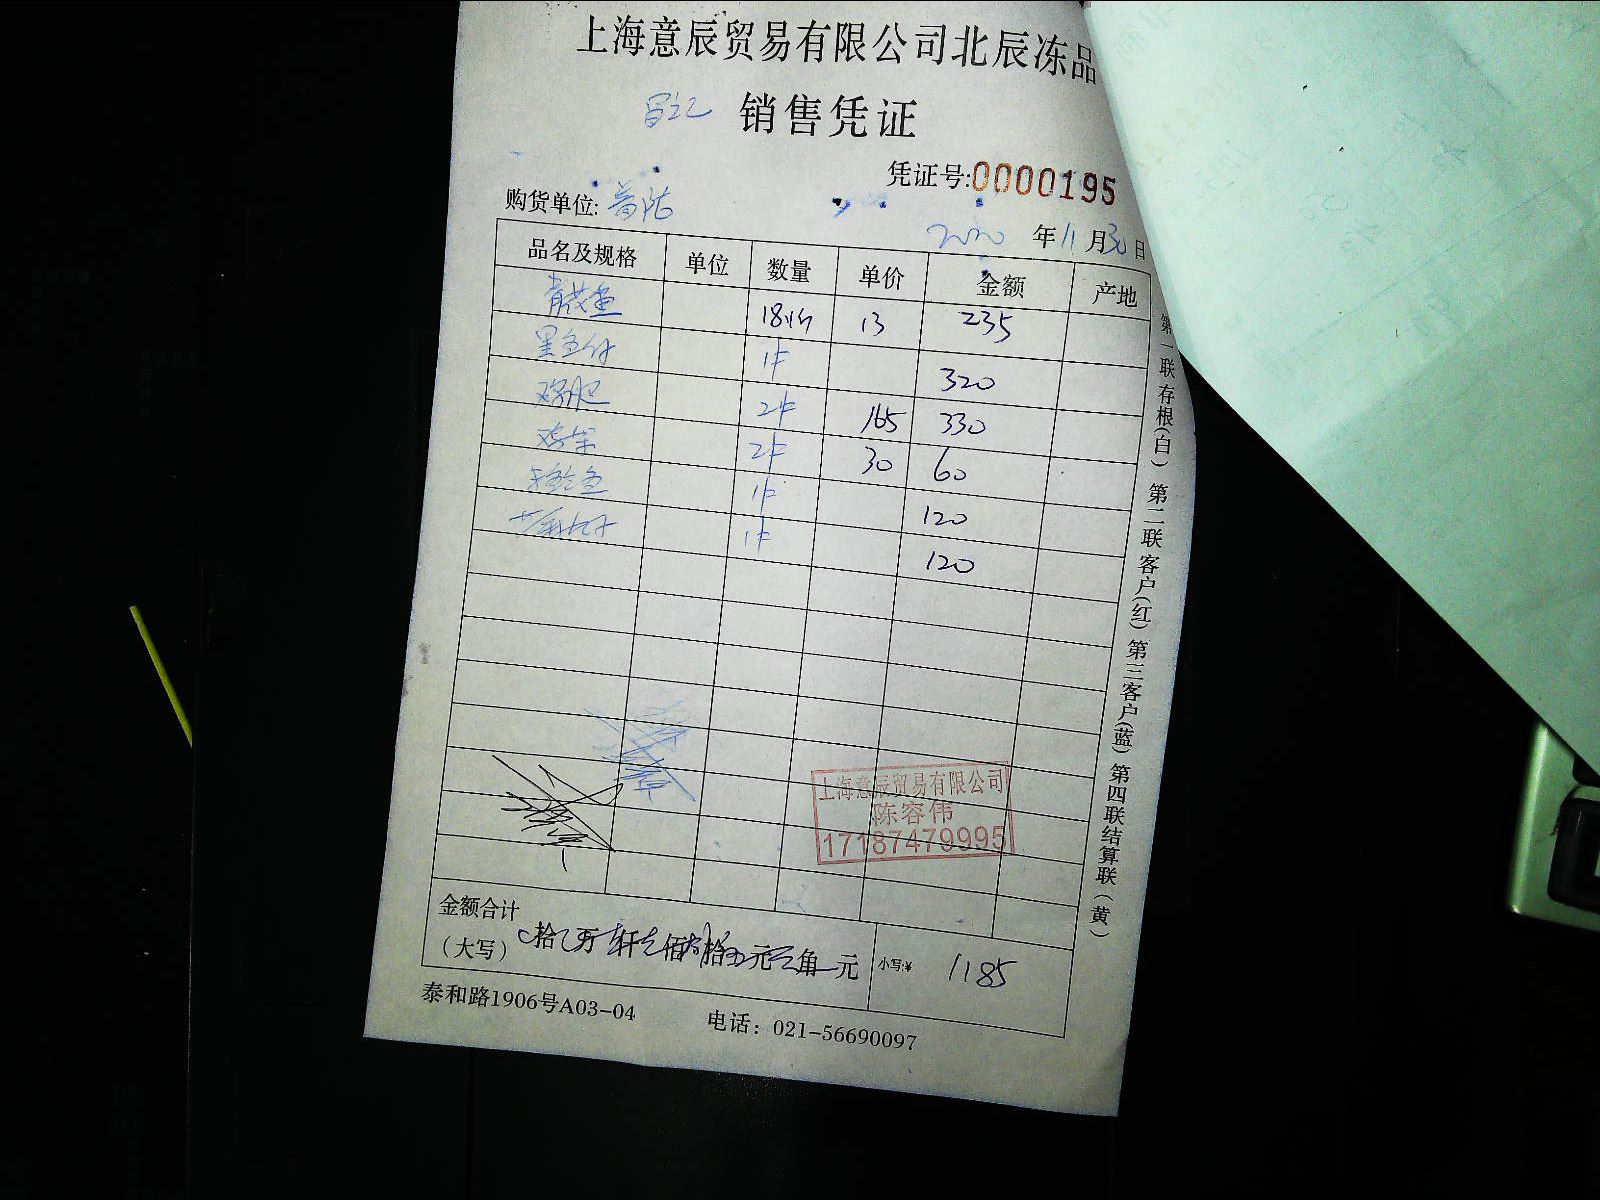 上海意辰贸易有限公司北辰冻品
销售凭证
凭证号:0000195
购货单位:
2020 年 11 月 30 日
品名及规格 单位 数量 单价 金额 产地
青花鱼 18 13 235
黑鱼 1件 320
2件 165 330
2件 30 60
1件 120
1件 120
上海意辰贸易有限公司
陈容伟
17187479995
金额合计
(大写) 拾 万 仟 佰 拾 元 角 元 小写:¥ 1185
泰和路1906号A03-04 电话：021-56690097
第一联存根(白) 第二联客户(红) 第三客户(蓝) 第四联结算联(黄)